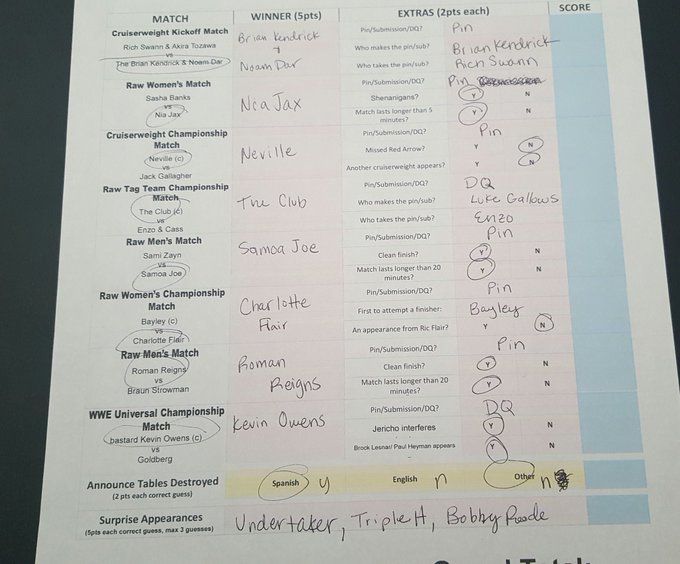 MATCH WINNER (5pts) EXTRAS (2pts each) SCORE
Cruiserweight Kickoff Match
Rich Swann & Akira Tozawa
vs
The Brian Kendrick & Noam Dar
Brian Kendrick
+
Noam Dar
Pin/Submission/DQ? Pin
Who makes the pin/sub? Brian Kendrick
Who takes the pin/sub? Rich Swann
Raw Women's Match
Sasha Banks
vs
Nia Jax
Nia Jax
Pin/Submission/DQ? Pin
Shenanigans? Y N
Match lasts longer than 5
minutes? Y N
Cruiserweight Championship
Match
Neville (c)
vs
Jack Gallagher
Neville
Pin/Submission/DQ? Pin
Missed Red Arrow? Y N
Another cruiserweight appears? Y N
Raw Tag Team Championship
Match
The Club (c)
vs
Enzo & Cass
The Club
Pin/Submission/DQ? DQ
Who makes the pin/sub? Luke Gallows
Who takes the pin/sub? Enzo
Raw Men's Match
Sami Zayn
vs
Samoa Joe
Samoa Joe
Pin/Submission/DQ? Pin
Clean finish? Y N
Match lasts longer than 20
minutes? Y N
Raw Women's Championship
Match
Bayley (c)
vs
Charlotte Flair
Charlotte
Flair
Pin/Submission/DQ? Pin
First to attempt a finisher: Bayley
An appearance from Ric Flair? Y N
Raw Men's Match
Roman Reigns
vs
Braun Strowman
Roman
Reigns
Pin/Submission/DQ? Pin
Clean finish? Y N
Match lasts longer than 20
minutes? Y N
WWE Universal Championship
Match
bastard Kevin Owens (c)
vs
Goldberg
Kevin Owens
Pin/Submission/DQ? DQ
Jericho interferes Y N
Brock Lesnar/ Paul Heyman appears Y N
Announce Tables Destroyed
(2 pts each correct guess)
Spanish y English n Other n
Surprise Appearances
(5pts each correct guess, max 3 guesses)
Undertaker, Triple H, Bobby Roode